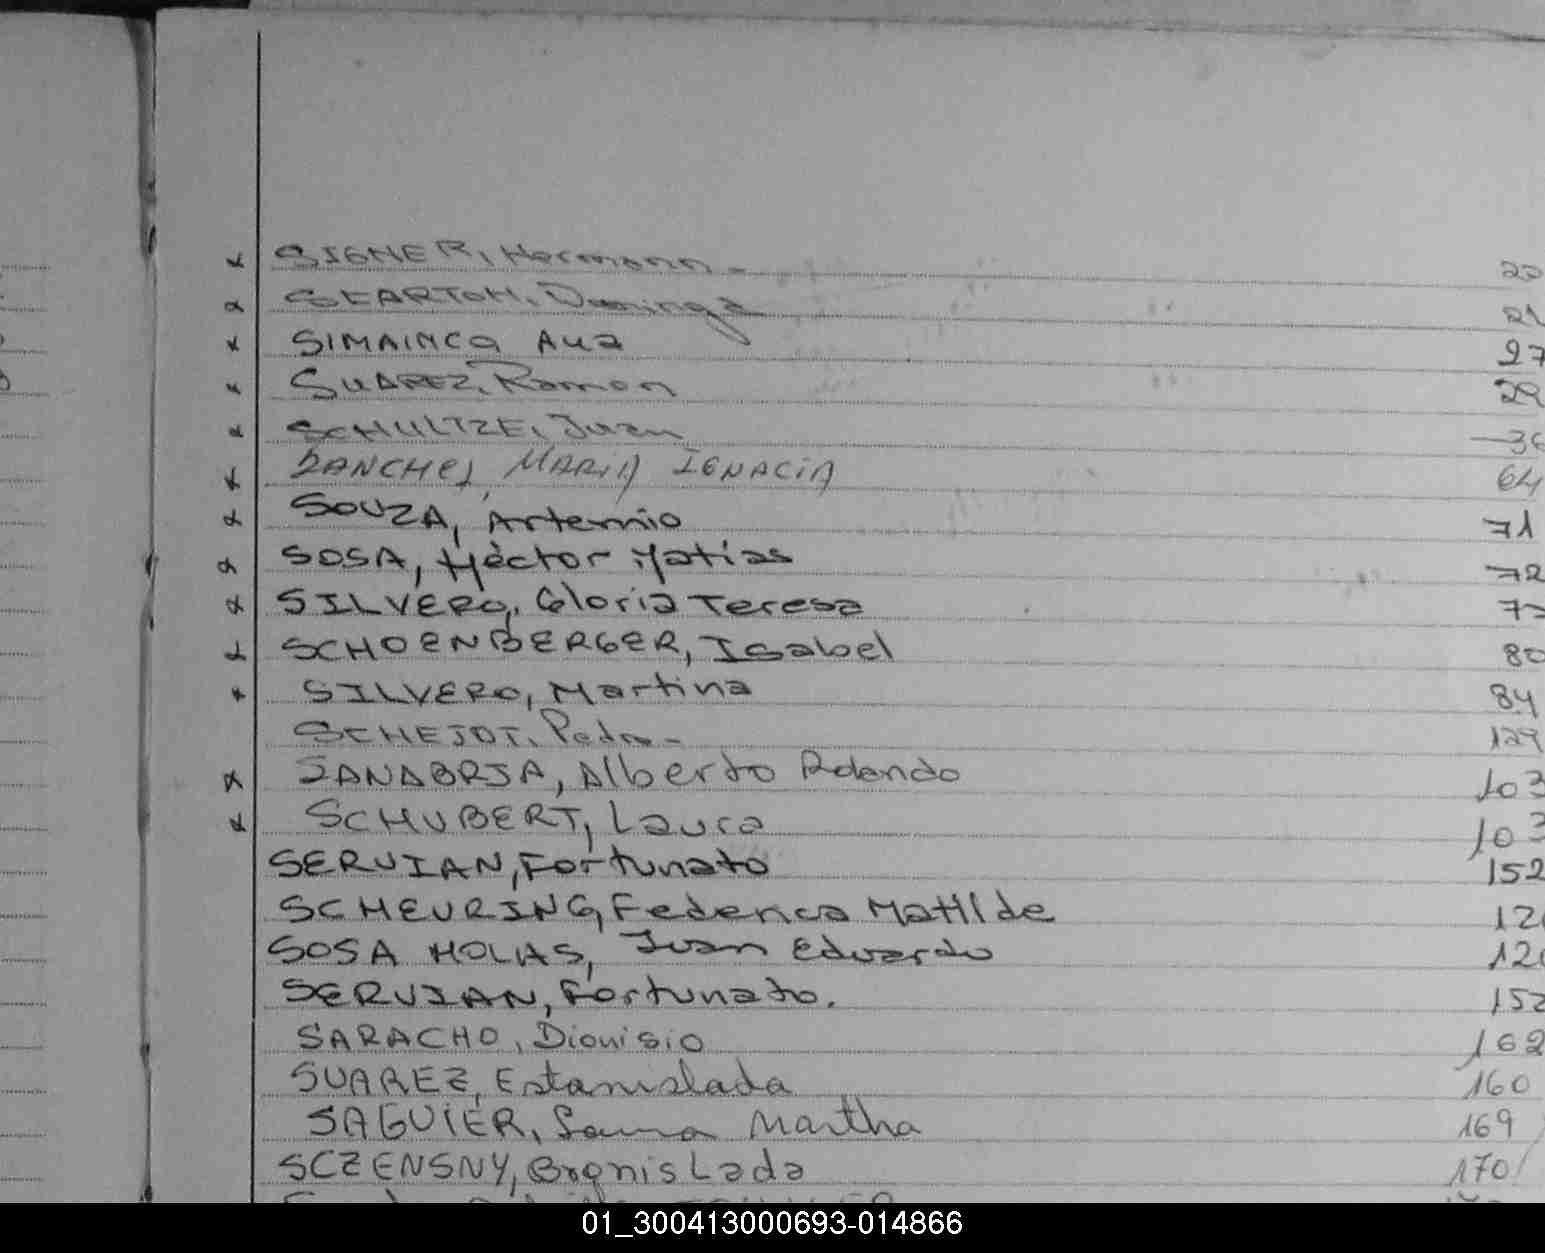 x SIGNER, Hermann - 22
x Dominga 21
x SIMAINCO Ana 27
x SUAREZ, Ramon 29
x SCHULTZE, Juan 36
x SANCHEZ, MARIA IGNACIA 64
x SOUZA, Artemio 71
x SOSA, Héctor Matías 72
x SILVERO, Gloria Teresa
x SCHOENBERGER, Isabel 80
x SILVERO, Martina 84
SCHEJOT, Pedro - 129
x SANABRIA, Alberto Rolando 103
x SCHUBERT, Laura 103
SERVIAN, Fortunato 152
SCHEURING, Federica Matilde
SOSA MOLAS, Juan Eduardo
SERVIAN, Fortunato. 152
SARACHO, Dionisio 162
SUAREZ, Estanislada 160
SAGUIER, Martha 169
SCZENSNY, Bronislada 170
01_300413000693-014866